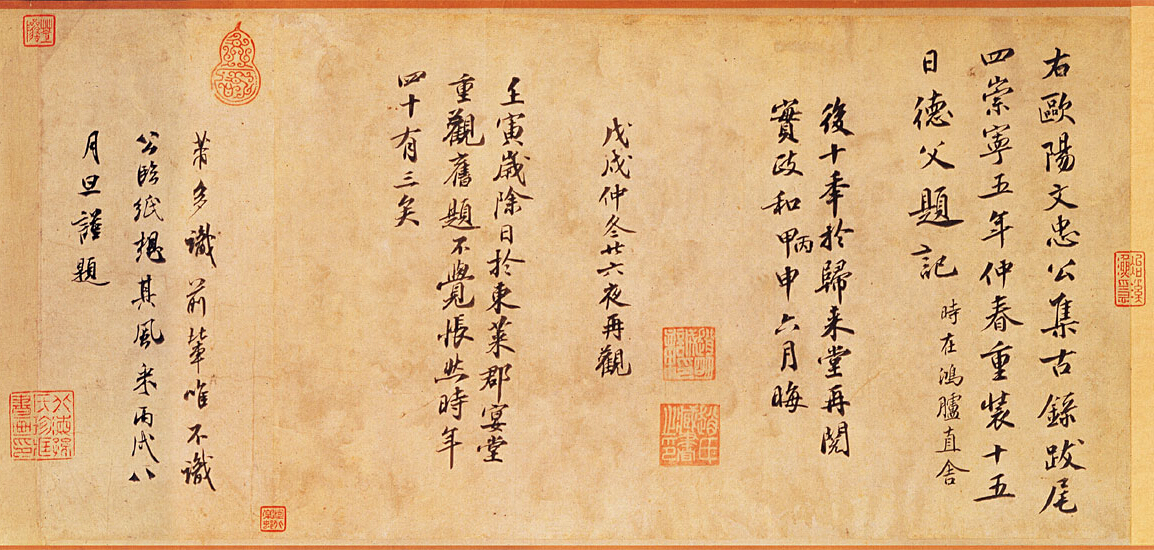 右歐陽文忠公集古錄跋尾
四崇寧五年仲春重裝十五
日德父題記
時在鴻臚直舍
後十年於歸来堂再閱
實政和甲丙申六月晦
戊戌仲冬廿六夜再觀
壬寅歲除日於東萊郡宴堂
重觀舊題不覺悵然時年
四十有三矣
芾多識前輩唯不識
公臨紙想其風采丙戌八
月旦謹題